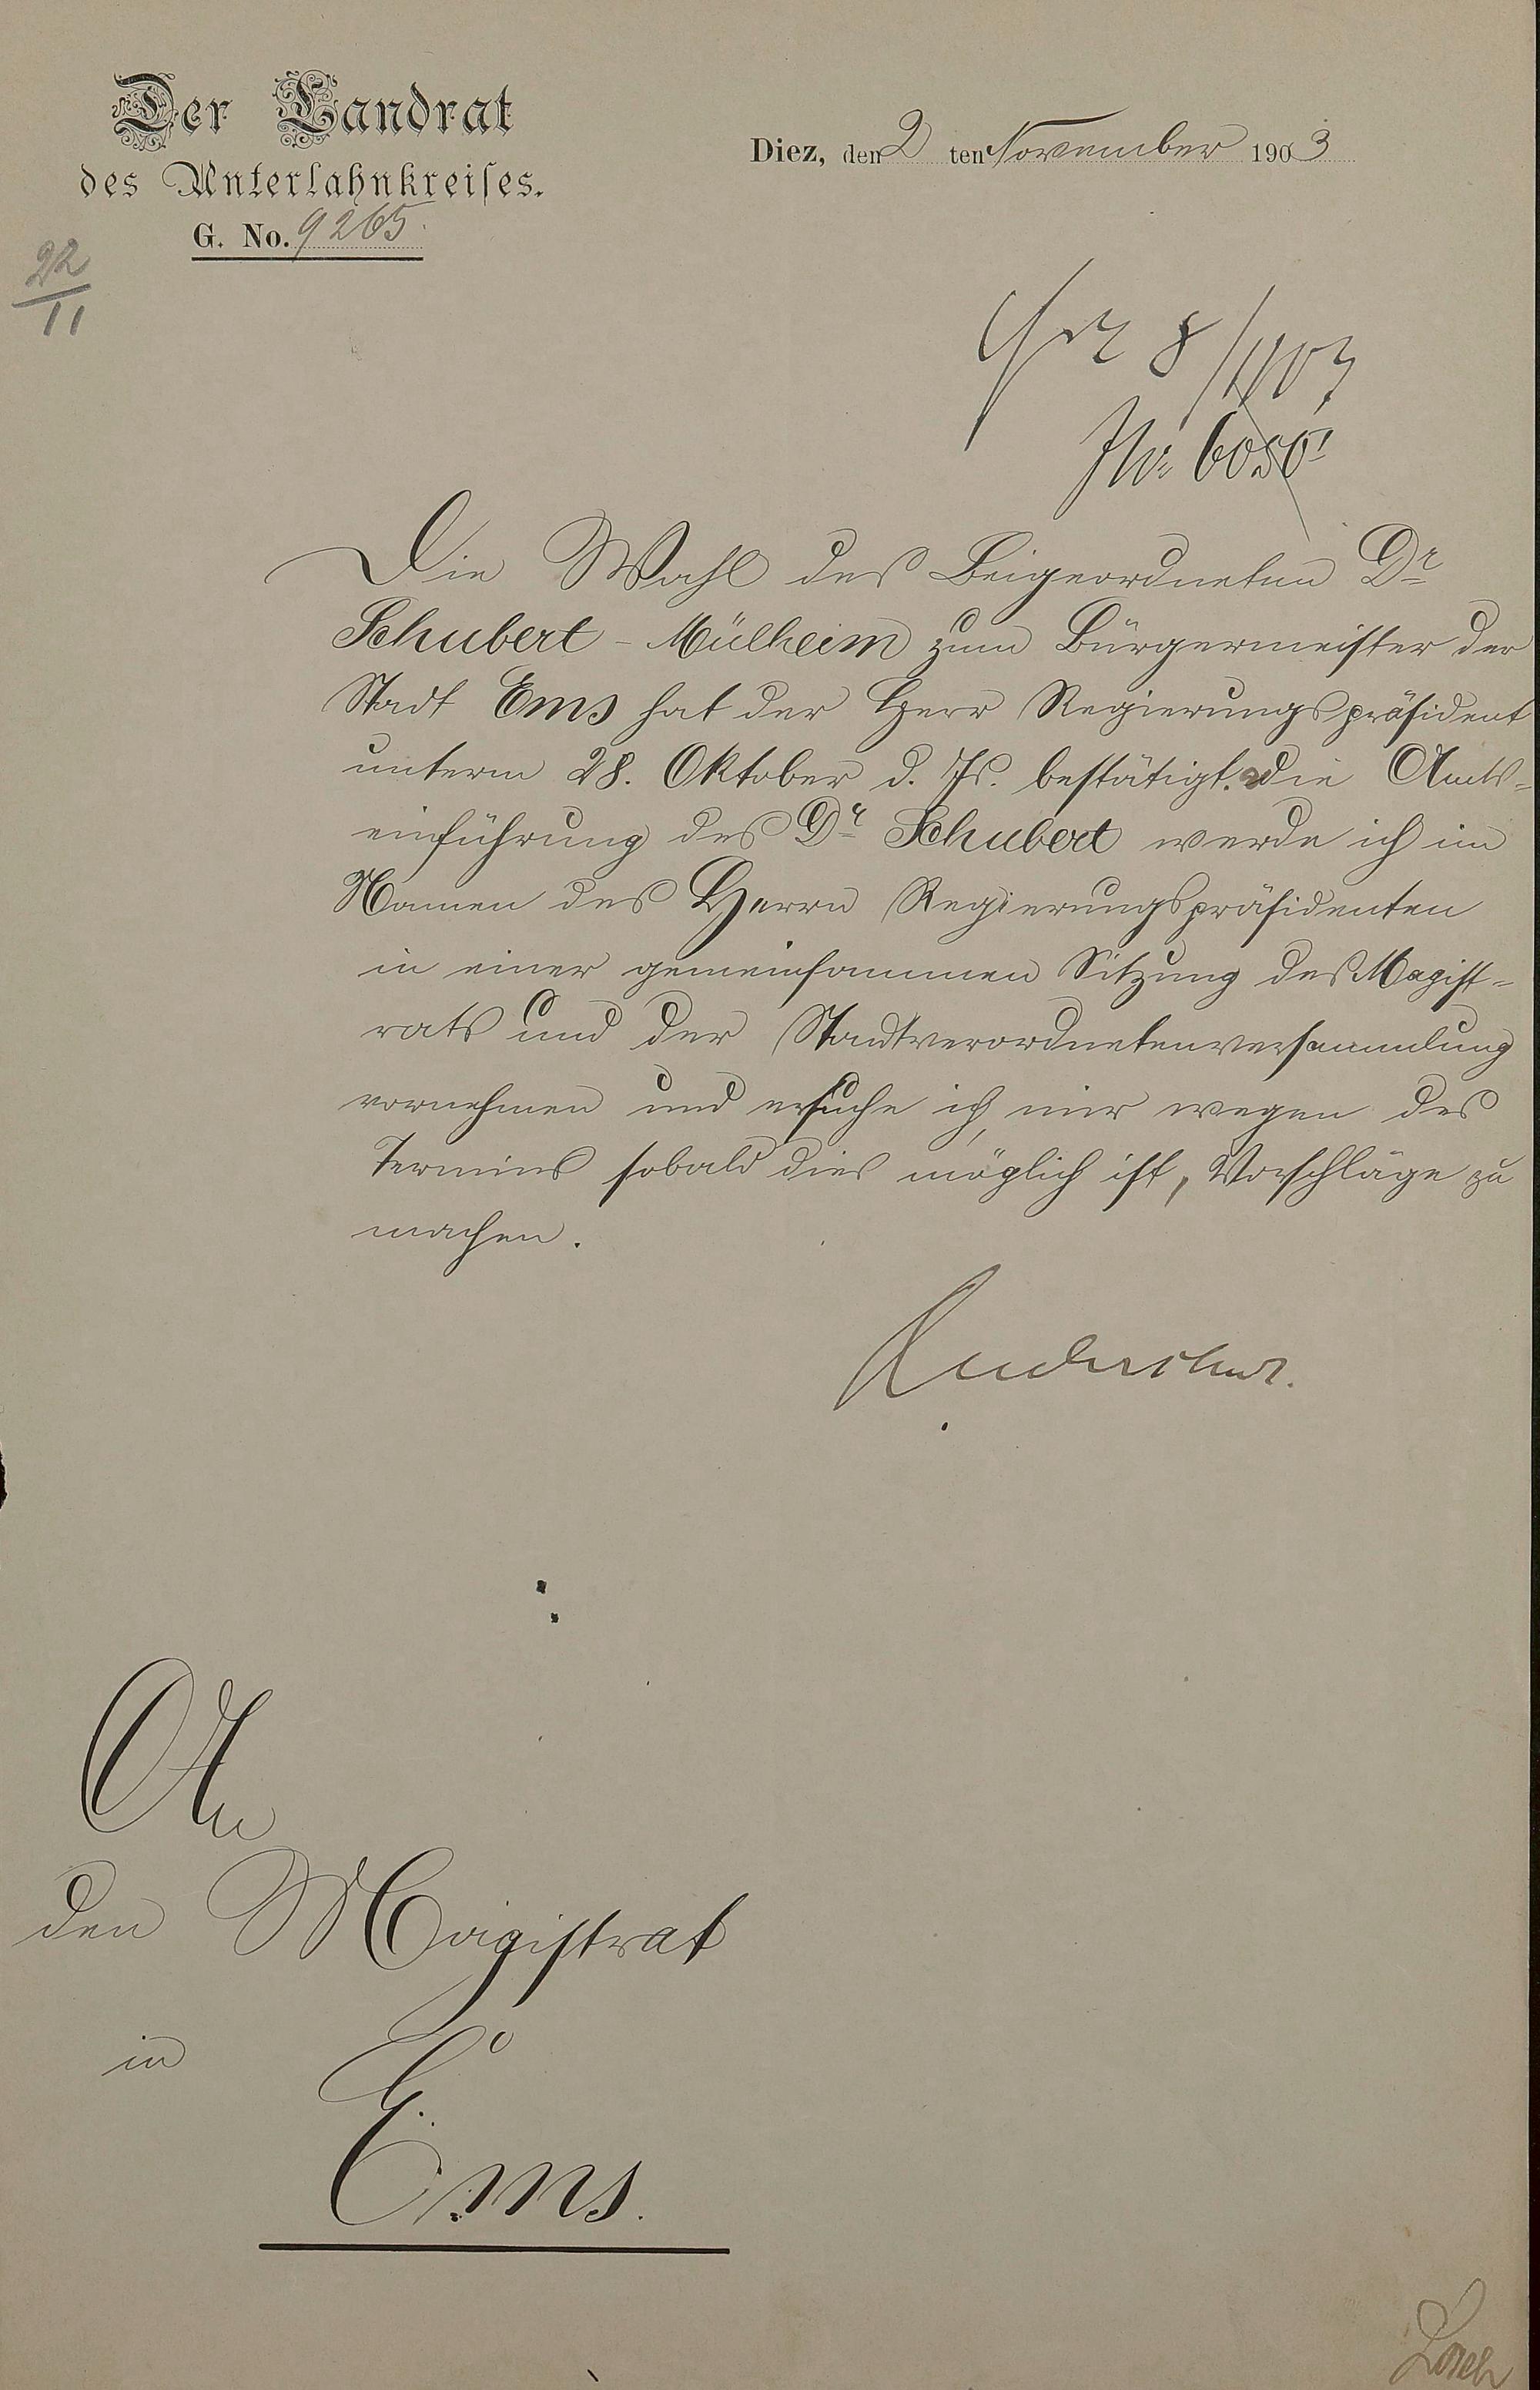 Der Landrat
des Unterlahnkreises.
G. No. 9265.
Diez, den 2 ten November 1903
22/11
8/11 03
JNr. 6050
Die Wahl des Beigeordneten Dr
Schubert - Mülheim zum Bürgermeister der
Stadt Ems hat der Herr Regierungspräsident
unterm 28. Oktober d. Js. bestätigt. Die Amts-
einführung des Dr Schubert werde ich im
Namen des Herrn Regierungspräsidenten
in einer gemeinsammen Sitzung des Magist-
rats und der Stadtverordnetenversammlung
vornehmen und ersuche ich, mir wegen des
Termins sobald dies möglich ist, Vorschläge zu
machen.
An
den Magistrat
in
Ems.